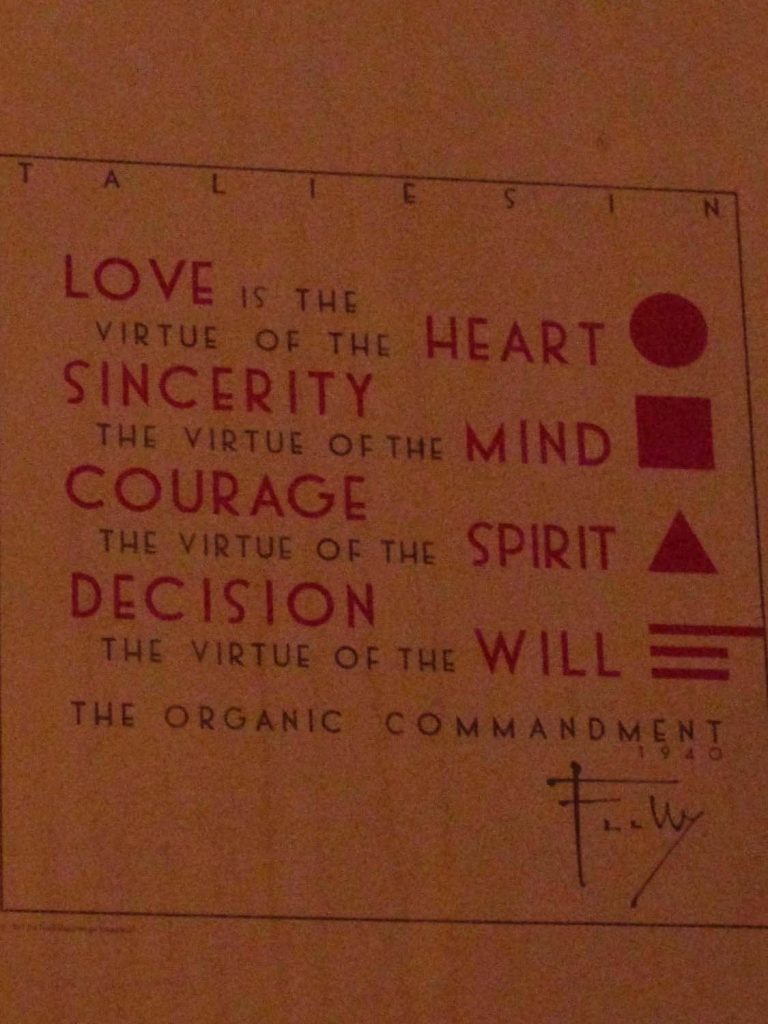 TALIESIN
LOVE IS THE
VIRTUE OF THE HEART
SINCERITY
THE VIRTUE OF THE MIND
COURAGE
THE VIRTUE OF THE SPIRIT
DECISION
THE VIRTUE OF THE WILL
THE ORGANIC COMMANDMENT
1940